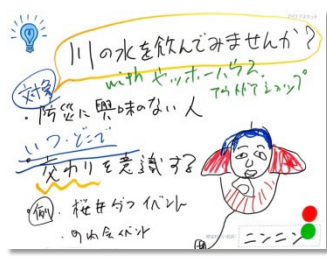 川の水を飲んでみませんか?
with ヤッホーハウス
アウトドアショップ
対象
・防災に興味のない人
いつ・どこで
・交わりを意識する
例 ・桜井ダンイベント
・町内会イベント
ニンニン